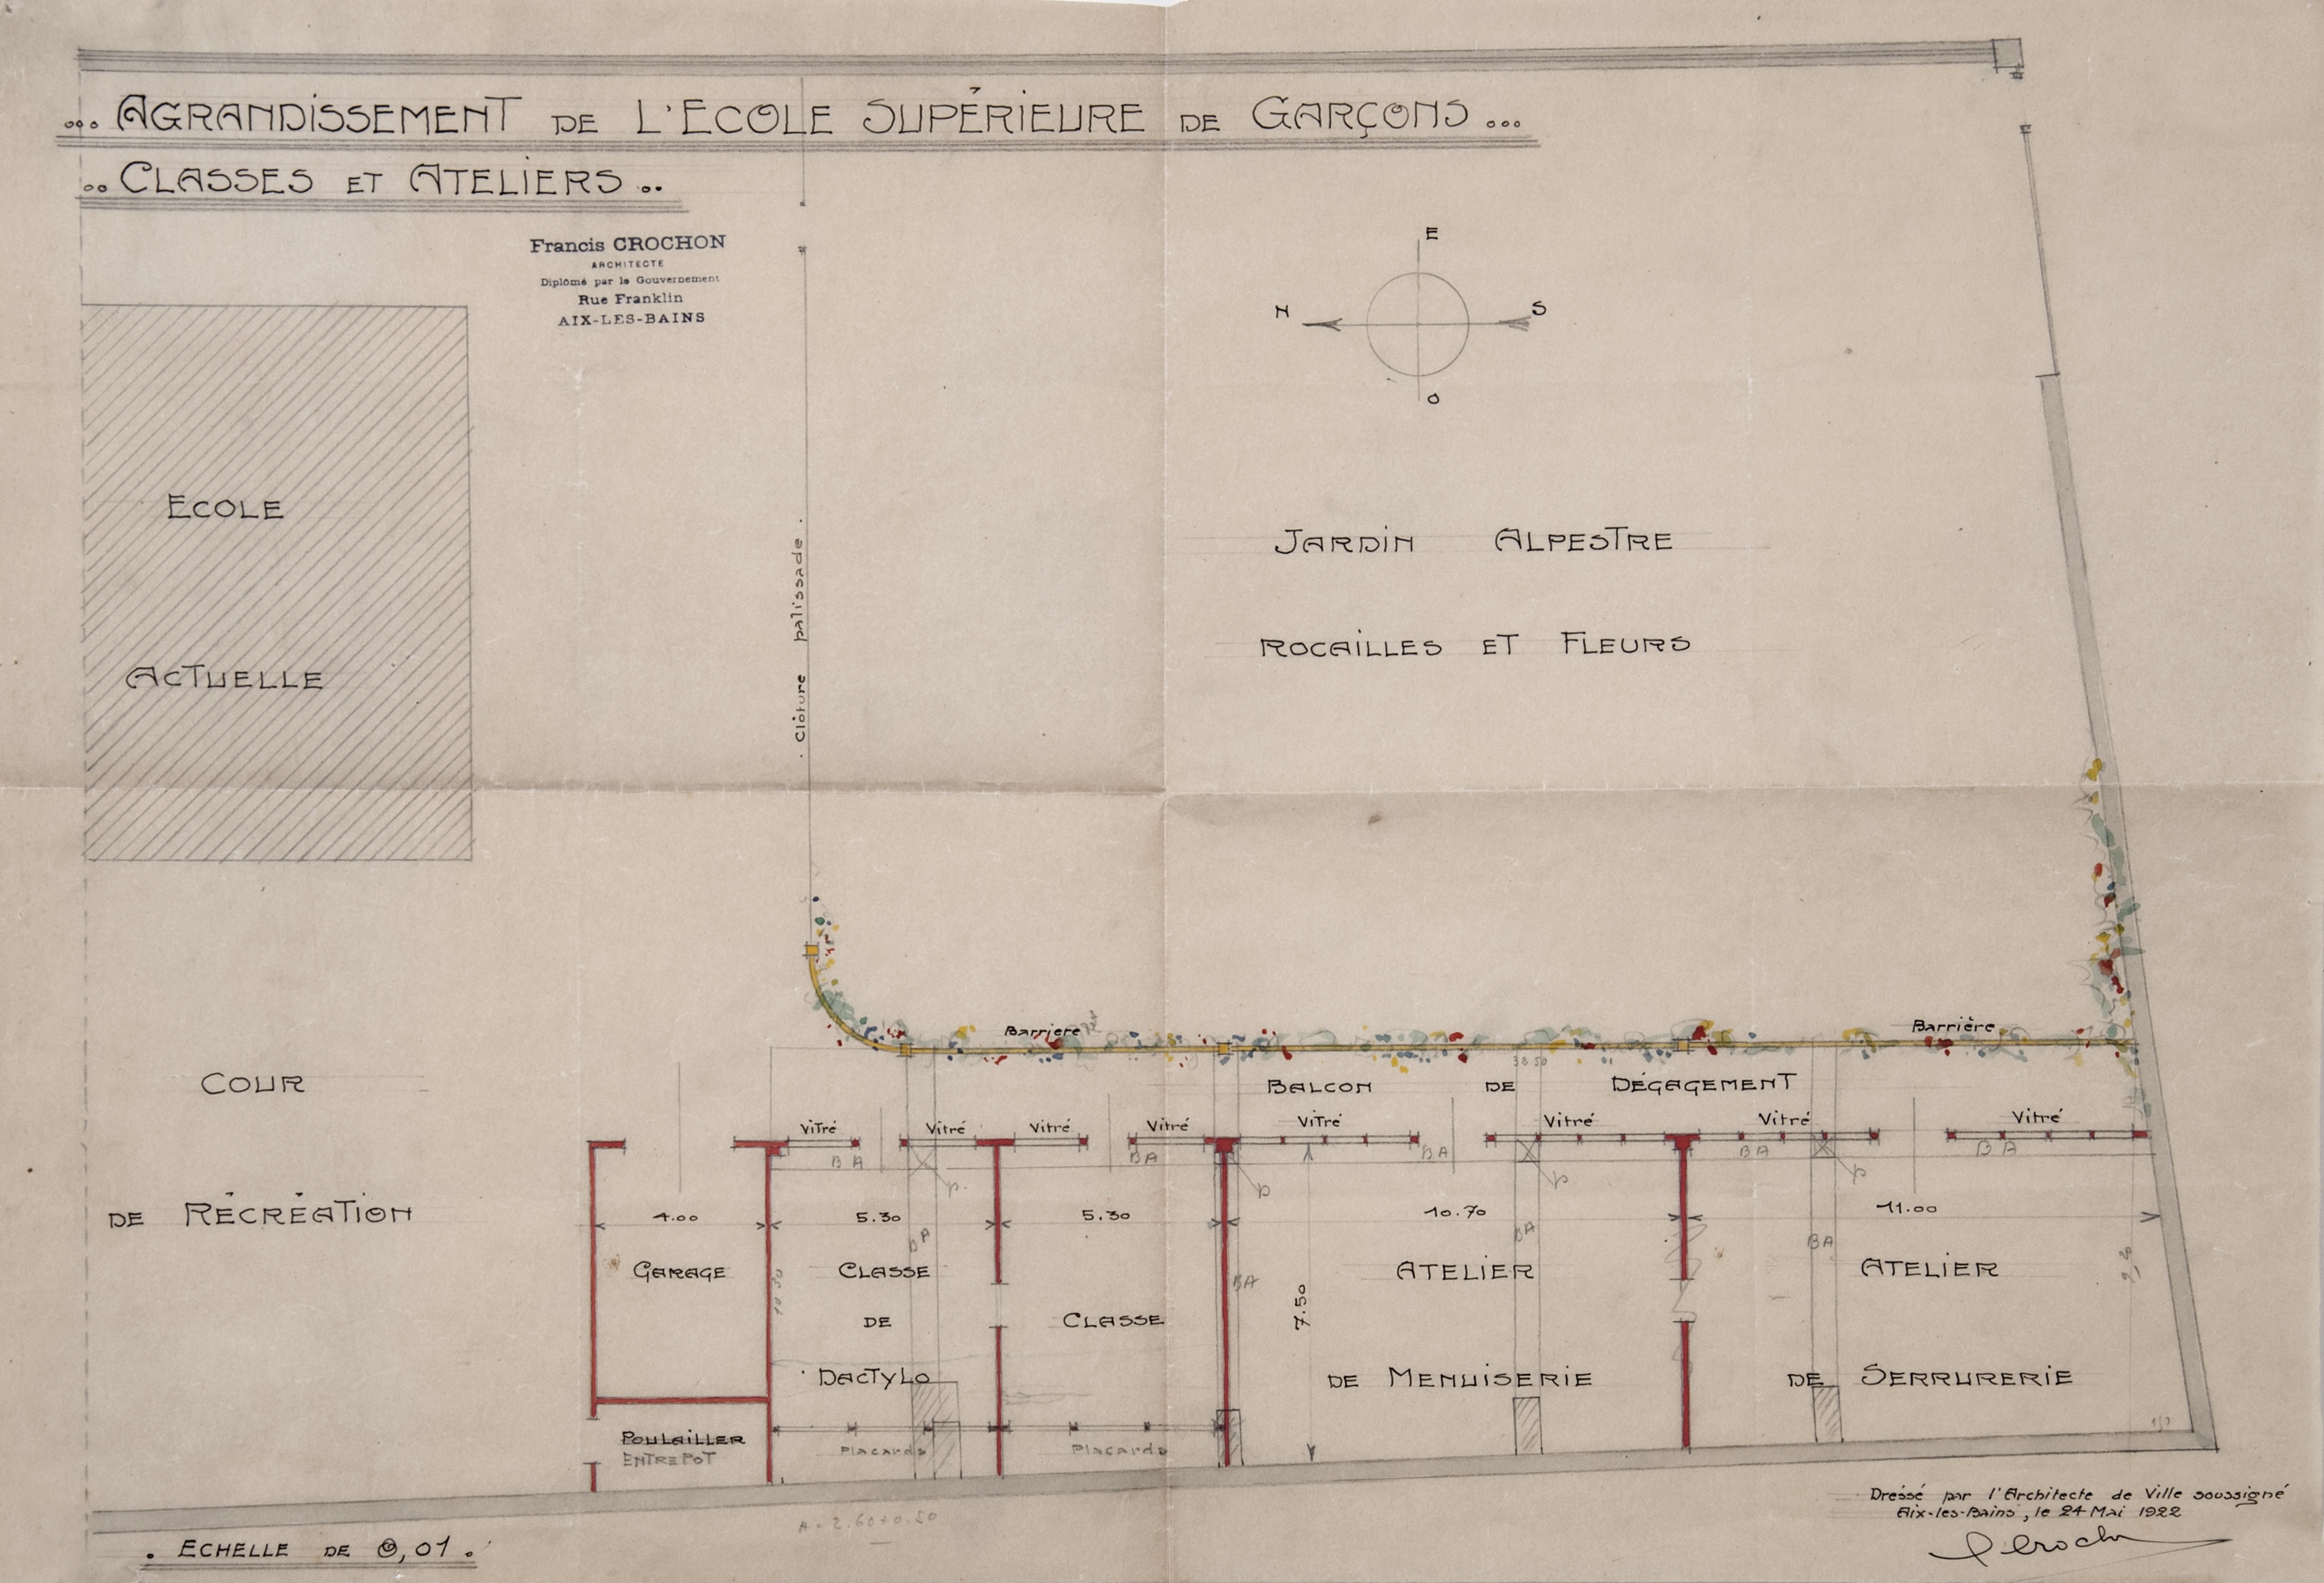 ... AGRANDISSEMENT DE L'ECOLE SUPÉRIEURE DE GARÇONS ...
.. CLASSES ET ATELIERS ..
Francis CROCHON
ARCHITECTE
Diplômé par le Gouvernement
Rue Franklin
AIX-LES-BAINS
E
N
S
O
ECOLE
ACTUELLE
. Clôture palissade .
JARDIN ALPESTRE
ROCAILLES ET FLEURS
Barrière
Barrière
38.50
COUR
DE RÉCRÉATION
BALCON DE DÉGAGEMENT
Vitré
Vitré
Vitré
Vitré
Vitré
Vitré
Vitré
Vitré
BA
BA
BA
BA
BA
p.
p
p
p
4.00
5.30
5.30
10.70
11.00
BA
BA
BA
BA
10.50
7.50
GARAGE
CLASSE
DE
DACTYLO
CLASSE
ATELIER
DE MENUISERIE
ATELIER
DE SERRURERIE
POULAILLER
ENTREPOT
Placards
Placards
A = 2.60+0.50
Dressé par l'Architecte de Ville soussigné
Aix-les-Bains, le 24 Mai 1922
. ECHELLE DE 0,01 .